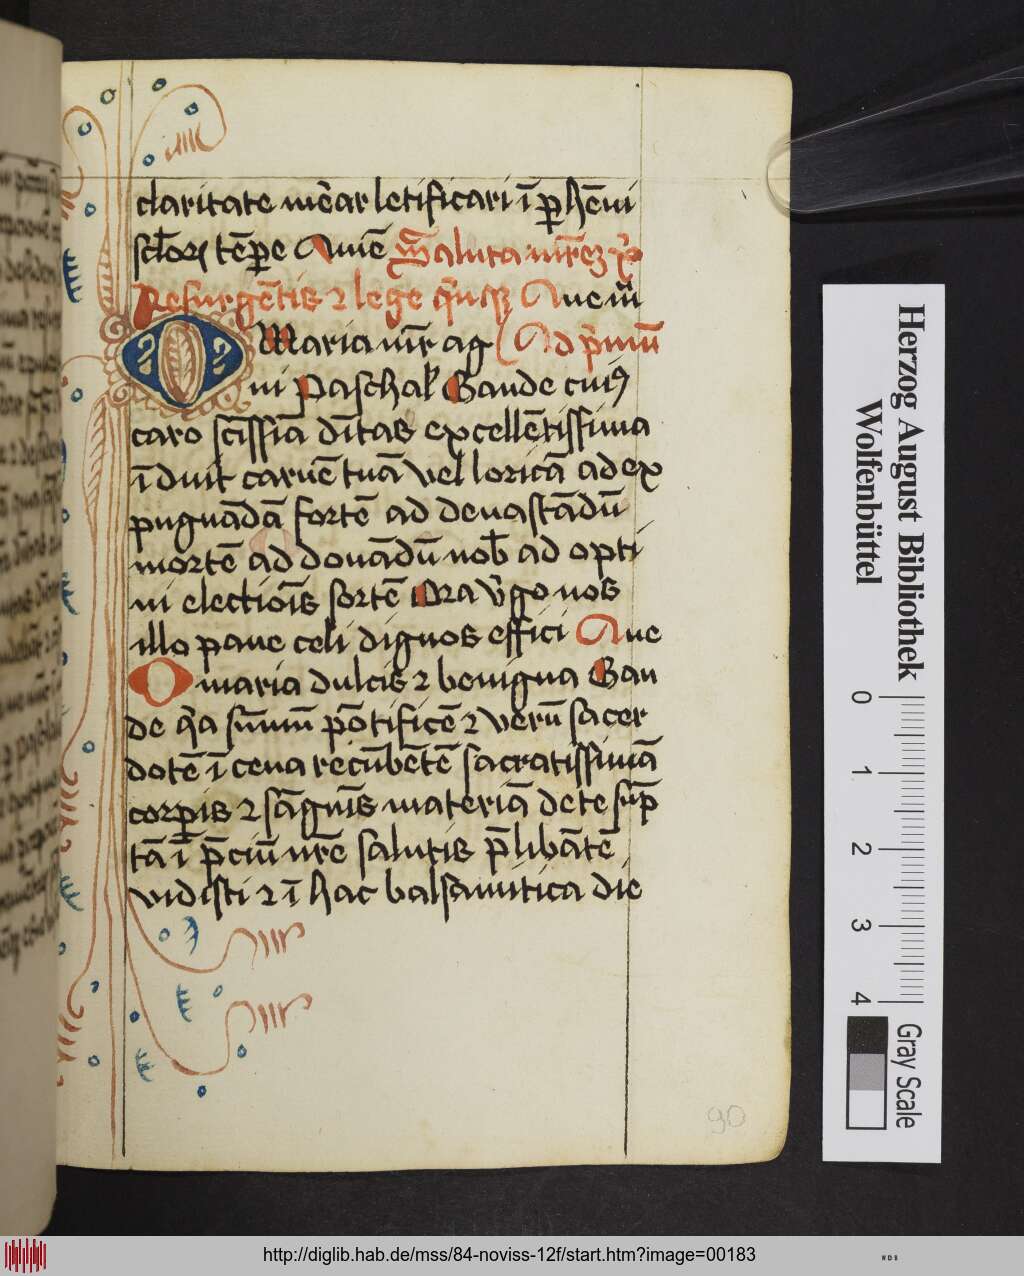 claritate mēar letificari ī ꝑhēni
sctōrꝝ tēꝑe Amē Saluta mr̄eꝫ xp̄i
Resurgētis ⁊ lege Aue m̄
O Maria mr̄ ag Ad p̄mū
ni Paschal Gaude cuiꝰ
caro sc̄issīa dītas excellētissima
īduit carnē tuā vel loricā ad ex
pugnādā fortē ad deuastādū
mortē ad donādū nob̄ ad opti
ni electiōis sortē Ora v̄go nos
illo pane celi dignos effici Aue
O maria dulcis ⁊ benigna Gau
de q̄a sūmū pōtificē ⁊ verū sacer
dotē ī cena recūbētē sacratissimā
corꝑis ⁊ sāguīs materiā de te sūp
tā ī p̄ciū nr̄e salutis p̄libātē
vidisti ⁊ ī hac balsamitica die
90
Herzog August Bibliothek
Wolfenbüttel
0 1 2 3 4
Gray Scale
http://diglib.hab.de/mss/84-noviss-12f/start.htm?image=00183